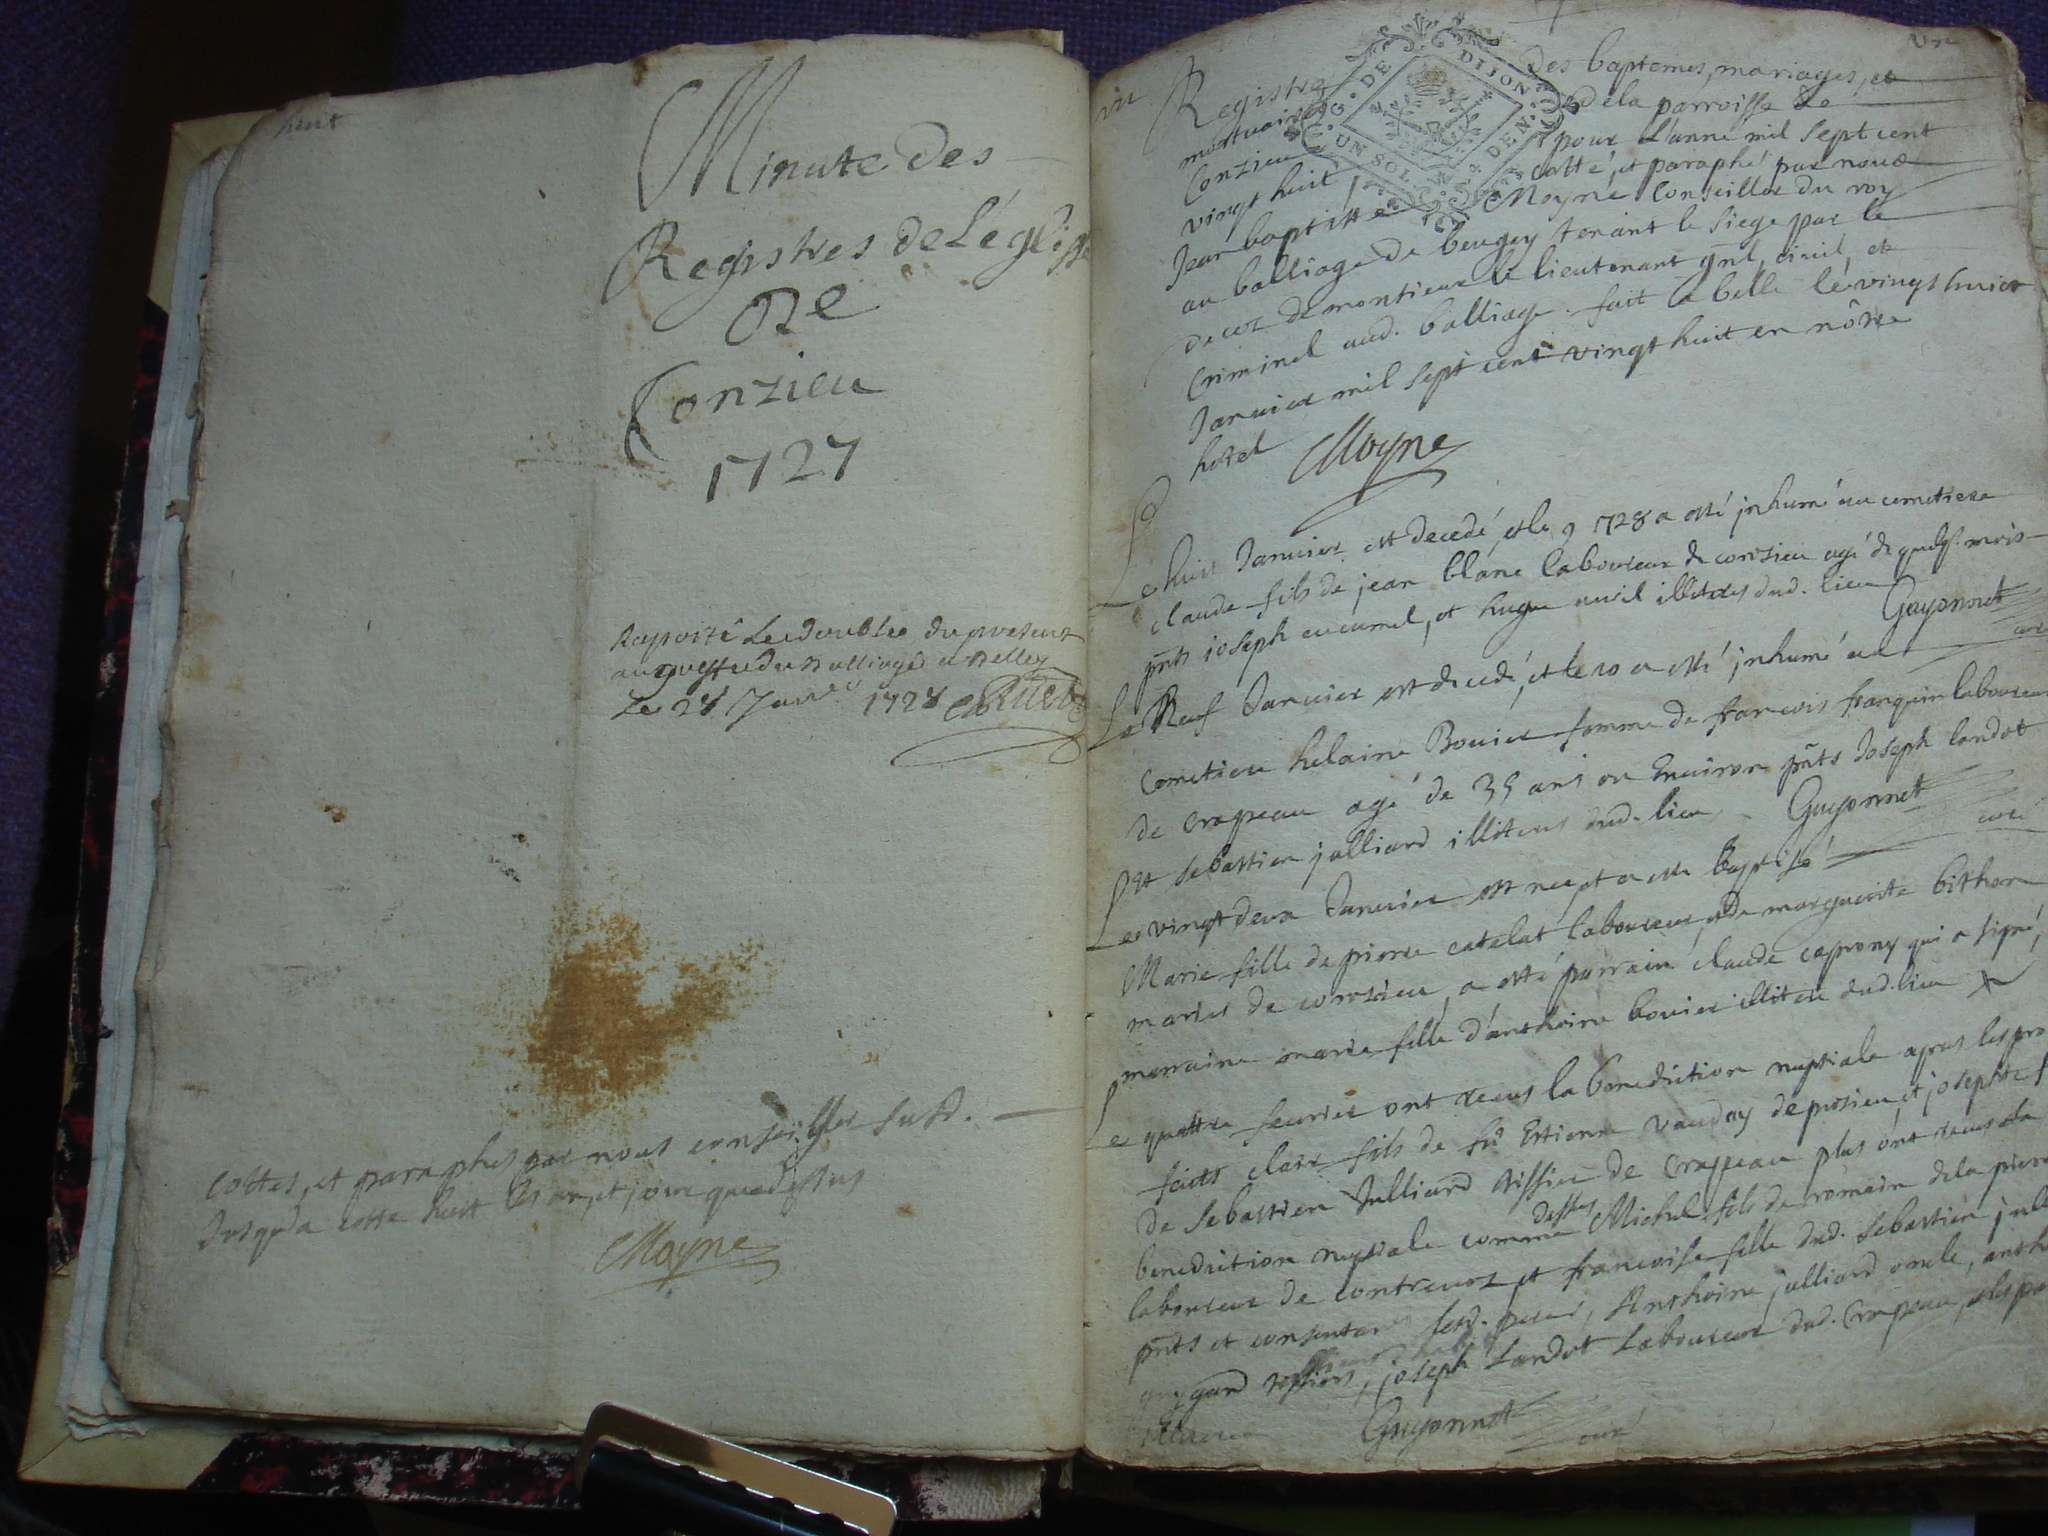 huit
Minute des
Registres de L'églisse
De
Conzieu
1727
Raporté Le double du present
au greffe du Balliage a Belley
Le 28 Janer 1728
Cottes, et paraphes par nous conseiller susd.
Jusqu'a cotte huit les an, et jour que dessus
Moyne
un
Registre des baptemes, mariages, et
mortuaires de la parroisse de
Conzieu pour L'anné mil sept cent
vingt huit cotté, et paraphé par nous
Jean baptiste Moyne Conseiller du roy
au balliage de beugey tenant le siege par le
deces de monsieur le lieutenant gnl, civil, et
Criminel aud. balliage. fait a belle le vingt huier
Janvier mil sept cent vingt huit en nôtre
hotel Moyne
G. DE DIJON
UN SOL DEN.
Le huit Janvier est decedé, et le 9 1728 a esté jnhumé au cemetiere
claude fils de jean blanc laboureur de conzieu agé de quelqs. mois
pnts joseph cucumel, et hugue illiteres dud. lieu Guyonnet
curé
Le Neuf Janvier est decedé, et le 10 a esté jnhumé au
Cemetiere helaine Bouier femme de francois franquin laboureur
de Crapeau agé de 35 ans ou Environ pnts Joseph landot
Et sebastien julliard illiteres dud. lieu Guyonnet
curé
Le vingt deux Janvier est nee et a esté Baptisé
Marie fille de pierre catelat laboureur, et de marguerite bithon
maries de conzieu, a esté parrain claude caprony qui a signé,
marraine marie fille d'anthoine bouier illitere dud. lieu
Le quattre feurier ont receus la benediction nuptiale apres les pro
faits clair fils de fû Estienne vauday de prosieu, et josephte f
de Sebastien Julliard tissier de Crappeau plus ont receus la
benediction nuptiale comme dessus Michel fils de romain de la pierre
laboureur de contreuoz et francoise fille dud. sebastien jull
pnts et consentans lesd. peres, Anthoine julliard oncle, anth
gard tessiers, joseph Landot Laboureur dud. Crapeau, et les pa
Guyonnet
curé